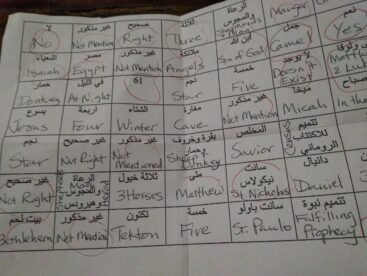 لا
No
غير مذكور
Not Mention
صحيح
Right
ثلاثة
Three
الرعاة والمجوس
Shepherds
نعم
Yes
اشعياء
Isaiah
مصر
Egypt
غير مذكور
Not Mention
ملائكة
Angels
ابن الله
Son of God
جمل
Camel
حمار
Donkey
في الليل
At Night
61
نجم
Star
خمسة
Five
لا يوجد
Doesn't Exist
يسوع
Jesus
اربعة
Four
الشتاء
Winter
مغارة
Cave
غير مذكور
Not Mention
ميخا
Micah
In the
نجم
Star
غير صحيح
Not Right
غير مذكور
Not Mentioned
بقرة وخروف وحمار
Donkey
المخلص
Savior
Census
للاكتتاب الروماني
غير صحيح
Not Right
الرعاة والمجوس وهيرودس
ثلاثة خيول
3 Horses
متى
Matthew
سانت نيكولاس
St. Nicholas
دانيال
Daniel
بيت لحم
Bethlehem
غير مذكور
Not Mention
تكتون
Tekton
خمسة
Five
سانت باولو
St. Paulo
تتميم نبوة
Fulfilling Prophecy